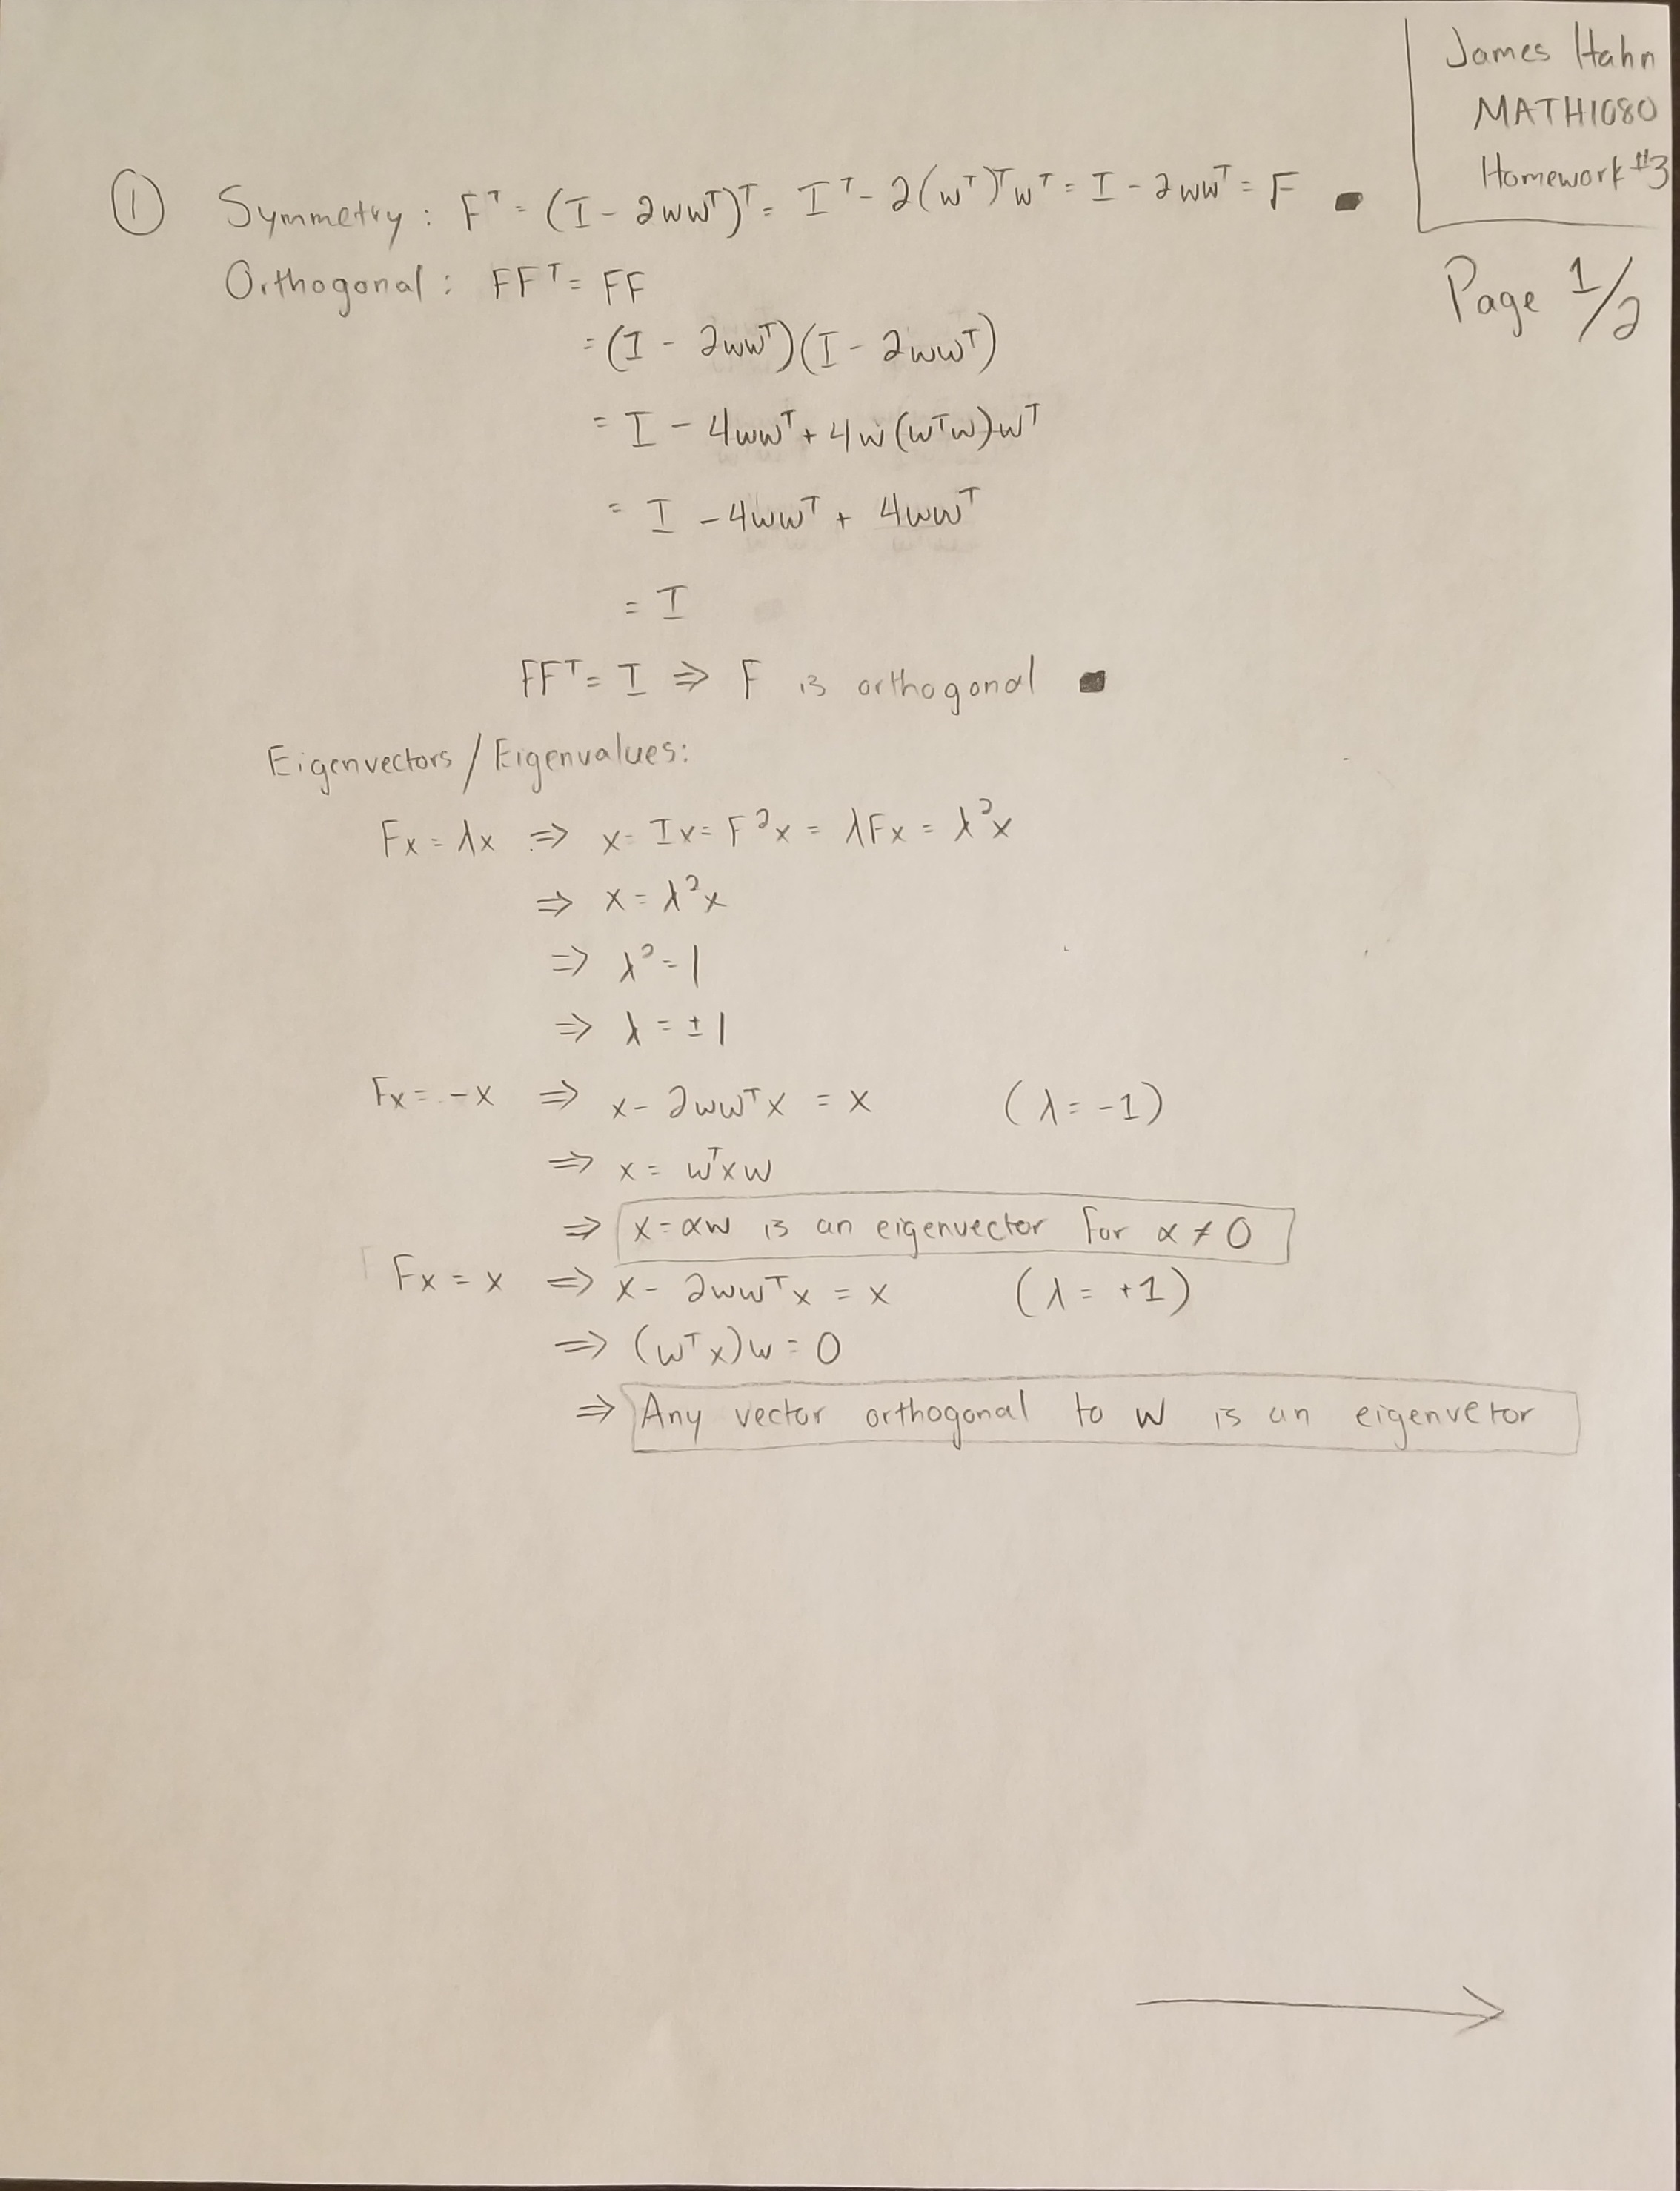 James Hahn
MATH1080
Homework #3
Page 1/2
① Symmetry: Fᵀ = (I - 2wwᵀ)ᵀ = Iᵀ - 2(wᵀ)ᵀwᵀ = I - 2wwᵀ = F ■
Orthogonal: FFᵀ = FF
= (I - 2wwᵀ)(I - 2wwᵀ)
= I - 4wwᵀ + 4w(wᵀw)wᵀ
= I - 4wwᵀ + 4wwᵀ
= I
FFᵀ = I ⇒ F is orthogonal ■
Eigenvectors/Eigenvalues:
Fx = λx ⇒ x = Ix = F²x = λFx = λ²x
⇒ x = λ²x
⇒ λ² = 1
⇒ λ = ±1
Fx = -x ⇒ x - 2wwᵀx = x (λ = -1)
⇒ x = wᵀxw
⇒ x = αw is an eigenvector for α ≠ 0
Fx = x ⇒ x - 2wwᵀx = x (λ = +1)
⇒ (wᵀx)w = 0
⇒ Any vector orthogonal to w is an eigenvetor